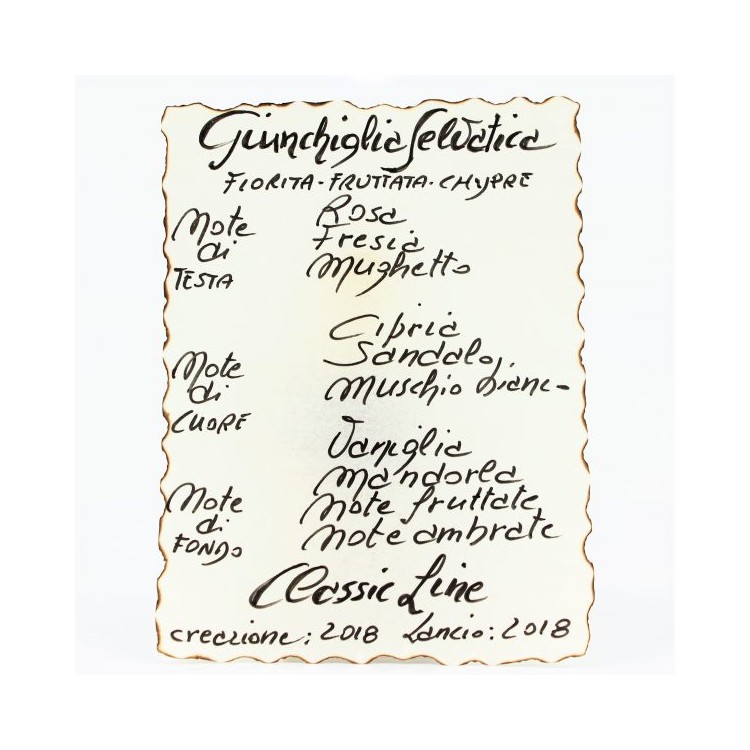 Giunchiglia Selvatica
FIORITA - FRUTTATA - CHYPRE
Note di TESTA
Rosa
Fresia
Mughetto
Note di CUORE
Cipria
Sandalo,
Muschio bianc-
Note di FONDO
Vaniglia
mandorla
Note fruttate
Note ambrate
Classic Line
creazione: 2018 Lancio: 2018